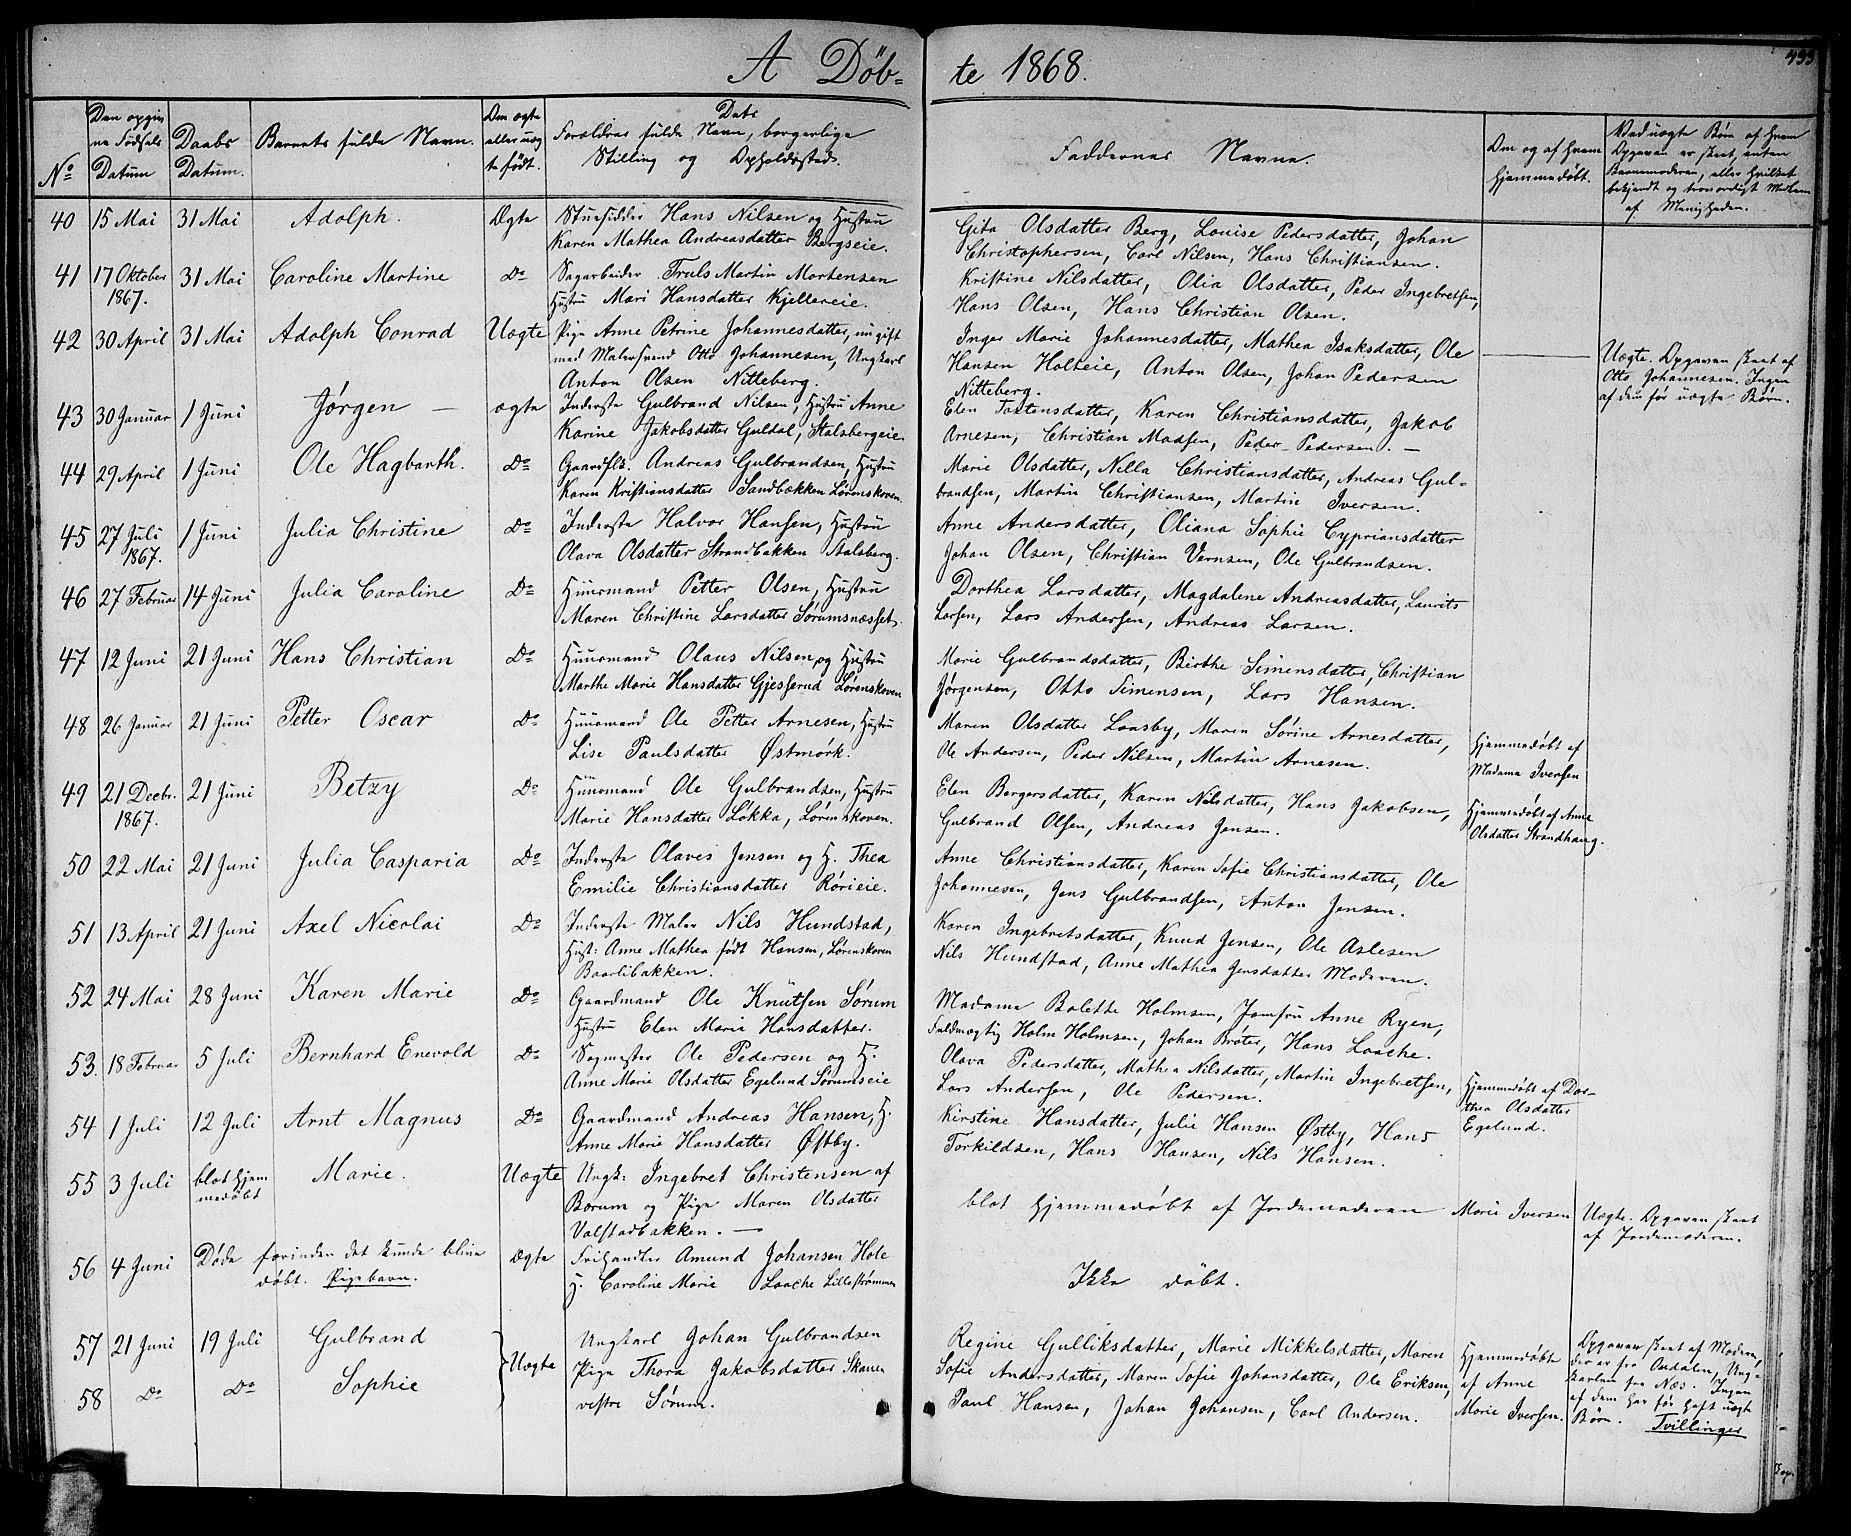 A Døb- te 1868.
Den opgivne Fødsels Datum
Daabs Datum.
Barnets fulde Navn.
Om ægte eller uægte født.
Dets Forældres fulde Navn, borgerlige Stilling og Opholdssted.
Faddernes Navne.
Om og af hvem hjemmedøbt.
Ved uægte Børn af hvem Opgaven er skeet, enten Barnemoderen, eller hvilket bekjendt og troværdigt Medlem af Menigheden.
No
40 15 Mai 31 Mai Adolph. Ægte Stuesidder Hans Nilsen og Hustru
Karen Mathea Andreasdatter Bergseie.
Gita Olsdatter Berg, Louise Pedersdatter, Johan
Christophersen, Carl Nilsen, Hans Christiansen.
41 17 Oktober 1867. 31 Mai Caroline Martine Do Sagarbeider Truls Martin Mortensen
Hustru Mari Hansdatter Kjellereie.
Kristine Nilsdatter, Olia Olsdatter, Peder Ingebretsen,
Hans Olsen, Hans Christian Olsen.
42 30 April 31 Mai Adolph Conrad Uægte Pige Anne Petrine Johannesdatter, nu gift
med Malersvend Otto Johannesen, Ungkarl
Anton Olsen Nitteberg.
Inger Marie Johannesdatter, Mathea Isaksdatter, Ole
Hansen Holteie, Anton Olsen, Johan Pedersen
Nitteberg.
Uægte. Opgaven skeet af
Otto Johannesen. Ingen
af dem før uægte Børn.
43 30 Januar 1 Juni Jørgen — ægte Inderste Gulbrand Nilsen, Hustru Anne
Karine Jakobsdatter Guldal, Stalsbergeie.
Elen Tostensdatter, Karen Christiansdatter, Jakob
Arnesen, Christian Madsen, Peder Pedersen. —
44 29 April 1 Juni Ole Hagbarth. Do Gaardfb. Andreas Gulbrandsen, Hustru
Karen Kristiansdatter Sandbækken Lørenskoven.
Marie Olsdatter, Nilla Christiansdatter, Andreas Gul-
brandsen, Martin Christiansen, Martin Iversen.
45 27 Juli 1867. 1 Juni Julia Christine Do Inderste Halvor Hansen, Hustru
Olava Olsdatter Strandbakken Stalsberg.
Anne Andersdatter, Oliana Sophie Cypriansdatter
Johan Olsen, Christian Vernsen, Ole Gulbrandsen.
46 27 Februar 14 Juni Julia Caroline Do Huusmand Petter Olsen, Hustru
Maren Christine Larsdatter Sørumsnesset.
Dorthea Larsdatter, Magdalene Andreasdatter, Laurits
Larsen, Lars Andersen, Andreas Larsen.
47 12 Juni 21 Juni Hans Christian Do Huusmand Olaus Nilsen og Hustru
Marthe Marie Hansdatter Gjesserud Lørenskoven
Marie Gulbrandsdatter, Birthe Simensdatter, Christian
Jørgensen, Otto Simensen, Lars Hansen.
48 26 Januar 21 Juni Petter Oscar Do Huusmand Ole Petter Arnesen, Hustru
Lise Paulsdatter Østmork.
Maren Olsdatter Laasby, Maren Sørine Arnesdatter,
Ole Andersen, Peder Nilsen, Martin Arnesen.
Hjemmedøbt af
Madame Iversen
49 21 Decbr. 1867. 21 Juni Betzy Do Huusmand Ole Gulbrandsen, Hustru
Marie Hansdatter Løkka, Lørenskoven.
Elen Bergersdatter, Karen Nilsdatter, Hans Jakobsen,
Gulbrand Olsen, Andreas Jensen.
Hjemmedøbt af Anne
Olsdatter Strandhaug.
50 22 Mai 21 Juni Julia Casparia Do Inderste Olaves Jensen og H. Thea
Emilie Christiansdatter Rørieie.
Anne Christiansdatter, Karen Sofie Christiansdatter, Ole
Johannesen, Jens Gulbrandsen, Anton Jensen.
51 13 April 21 Juni Axel Nicolai Do Inderste Maler Nils Hundstad,
Hust: Anne Mathea født Hansen, Lørenskoven
Baarlibakken.
Karen Ingebretsdatter, Knud Jensen, Ole Aslesen
Nils Hundstad, Anne Mathea Jensdatter Moderen.
52 24 Mai 28 Juni Karen Marie Do Gaardmand Ole Knutsen Sørum
Hustru Elen Marie Hansdatter.
Madame Bolette Holmsen, Jomfru Anne Ryen,
Fuldmægtig Holm Holmsen, Johan Brøter, Hans Laache.
53. 18 Februar 5 Juli Bernhard Enevold Do Sagmester Ole Pedersen og H.
Anne Marie Olsdatter Egelund Sørumseie
Olava Pedersdatter, Mathea Nilsdatter, Martin Ingebretsen,
Lars Andersen, Ole Pedersen.
Hjemmedøbt af Dor-
thea Olsdatter
Egelund.
54 1 Juli 12 Juli Arnt Magnus Do Gaardmand Andreas Hansen, H.
Anne Marie Hansdatter Østby.
Kirstine Hansdatter, Julie Hansen Østby, Hans
Torkildsen, Hans Hansen, Nils Hansen.
55 3 Juli blot hjemmedøbt Marie. Uægte Ungk: Ingebret Christensen af
Borum og Pige Maren Olsdatter
Valstadbakken. —
blot hjemmedøbt af Jordemoderen Marie Iversen
Uægte. Opgaven skeet
af Jordemoderen.
56 4 Juni Døde forinden det kunde blive
døbt. Pigebarn.
Ægte Frihandler Amund Johansen Hole
H. Caroline Marie Laache Lillestrømmen
Ikke døbt.
57 21 Juni 19 Juli Gulbrand
58 Do Do Sophie
Uægte Ungkarl Johan Gulbrandsen
Pige Thora Jakobsdatter Skaner
vestre Sørum.
Regine Gulliksdatter, Marie Mikkelsdatter, Maren
Sofie Andersdatter, Maren Sofie Johansdatter, Ole Eriksen,
Paul Hansen, Johan Johansen, Carl Andersen.
Hjemmedøbte
af Anne
Marie Iversen.
Opgaven skeet af Moderen,
der er fra Ovdalen, Ung-
karlen fra Næs. Ingen
af dem har før haft uægte
Børn. Tvillinger